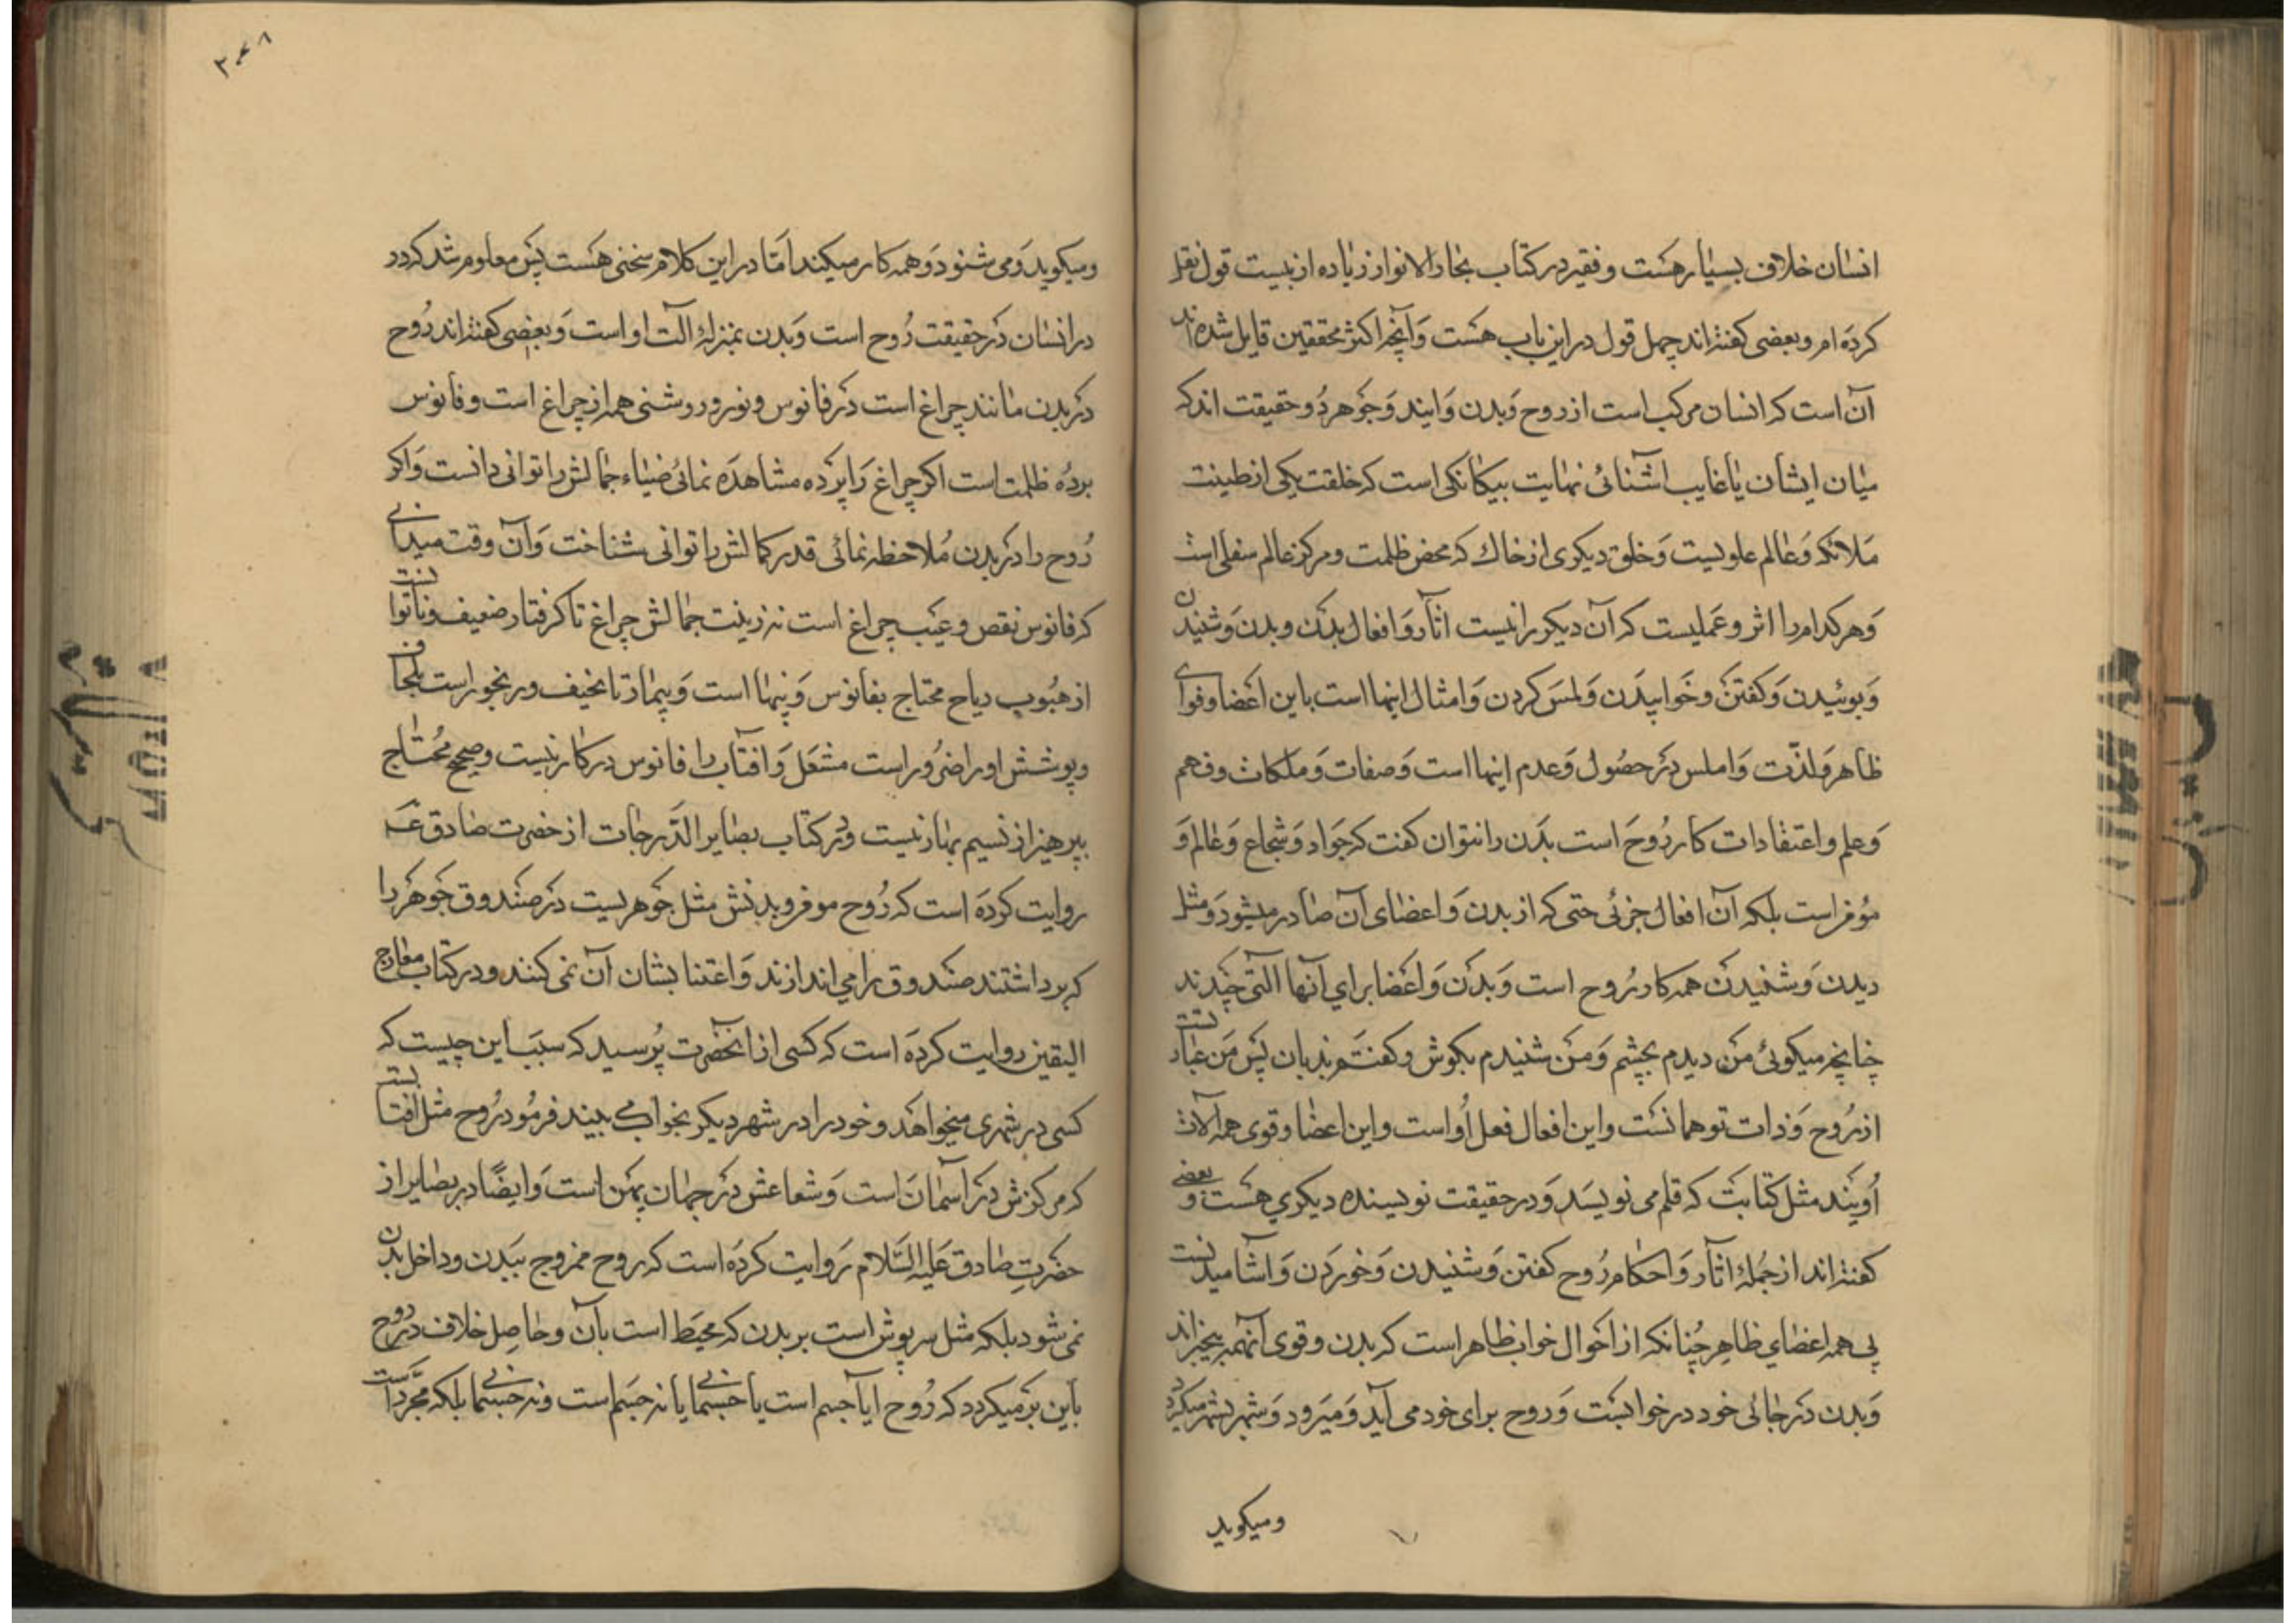 انسان خلاف بسیار هست و فقیر در کتاب بحار الانوار زیاده از بیست قول نقل
کرده ام و بعضی کفته اند چهل قول در این باب هست و آنچه اکثر محققین قایل شده اند
آن است که انسان مرکب است از روح و بدن و ایند و جوهر دو حقیقت اند که
میان ایشان یا غایب اشنائی نهایت بیکانکی است که خلقت یکی از طینت
ملائکه و عالم علویست و خلق دیکری از خاک که محض ظلمت و مرکز عالم سفلی است
و هر کدام را اثر و عملیست که آن دیکر را نیست اثار و افعال بدن و بدن و شنیدن
و بوئیدن و کفتن و خوابیدن و لمس کردن و امثال اینها است باین اعضا و قوای
ظاهر و لذت و املس در حصول و عدم اینها است و صفات و ملکات و فهم
و علم و اعتقادات کار روح است بدن را نتوان کفت که جواد و شجاع و عالم و
موفر است بلکه آن افعال جزئی حتی که از بدن و اعضای آن صادر میشود و مثل
دیدن و شنیدن همه کار روح است و بدن و اعضا برای آنها التی چندند
چنانچه میکوئی من دیدم بچشم و من شنیدم بکوش و کفتم بزبان پس من عبارتست
از روح و ذات تو همانست و این افعال فعل او است و این اعضا و قوی همه آلات
اویند مثل کتابت که قلم می نویسد و در حقیقت نویسنده دیکری هست و بعضی
کفته اند از جمله اثار و احکام روح کفتن و شنیدن و خوردن و اشامیدنست
بی همه اعضای ظاهر چنانکه از احوال خواب ظاهر است که بدن و قوی آنهمه بیخبراند
و بدن در جائی خود در خوابست و روح برای خود می آید و میرود و شهر بشهر میکردد
و میکوید
۳۰۸
و میکوید و می شنود و همه کار میکند اما در این کلام سخنی هست پس معلوم شد که در
در انسان در حقیقت روح است و بدن بمنزله الت او است و بعضی کفته اند روح
در بدن مانند چراغ است در فانوس و نور و روشنی همه از چراغ است و فانوس
پرده ظلمت است اکر چراغ را پرده مشاهده نمائی ضیاء جمالش را توانی دانست و اکر
روح را در بدن ملاحظه نمائی قدر کمالش را توانی شناخت و آن وقت میدانی
که فانوس نقص و عیب چراغ است نه زینت جمالش چراغ تا کرفتار ضعیف و ناتوانست
از هبوب ریاح محتاج بفانوس و پنهاا است و بیمار تا نحیف و رنجور است بلحاف
و پوشش او را ضرور است مشعل و افتاب را فانوس در کار نیست و صحیح محتاج
بپرهیز از نسیم بهار نیست و در کتاب بصایر الدرجات از حضرت صادق ع
روایت کرده است که روح موفر و بدنش مثل جوهریست در صندوق جوهر را
که برداشتند صندوق را می اندازند و اعتنا بشان آن نمی کنند و در کتاب معارج
الیقین روایت کرده است که کسی از انحضرت پرسید که سبب این چیست که
کسی در شهری میخواهد و خود را در شهر دیکر بخواب می بیند فرمود روح مثل آفتابست
که مرکزش در آسمان است و شعاعش در جهان پهن است و ایضا در بصایر از
حضرت صادق علیه السلام روایت کرده است که روح ممزوج ببدن و داخل بدن
نمی شود بلکه مثل سرپوش است بر بدن که محیط است بآن و حاصل خلاف در روح
باین بر میکردد که روح ایا جسم است یا جسمانی یا نه جسم است و نه جسمانی بلکه مجرد است